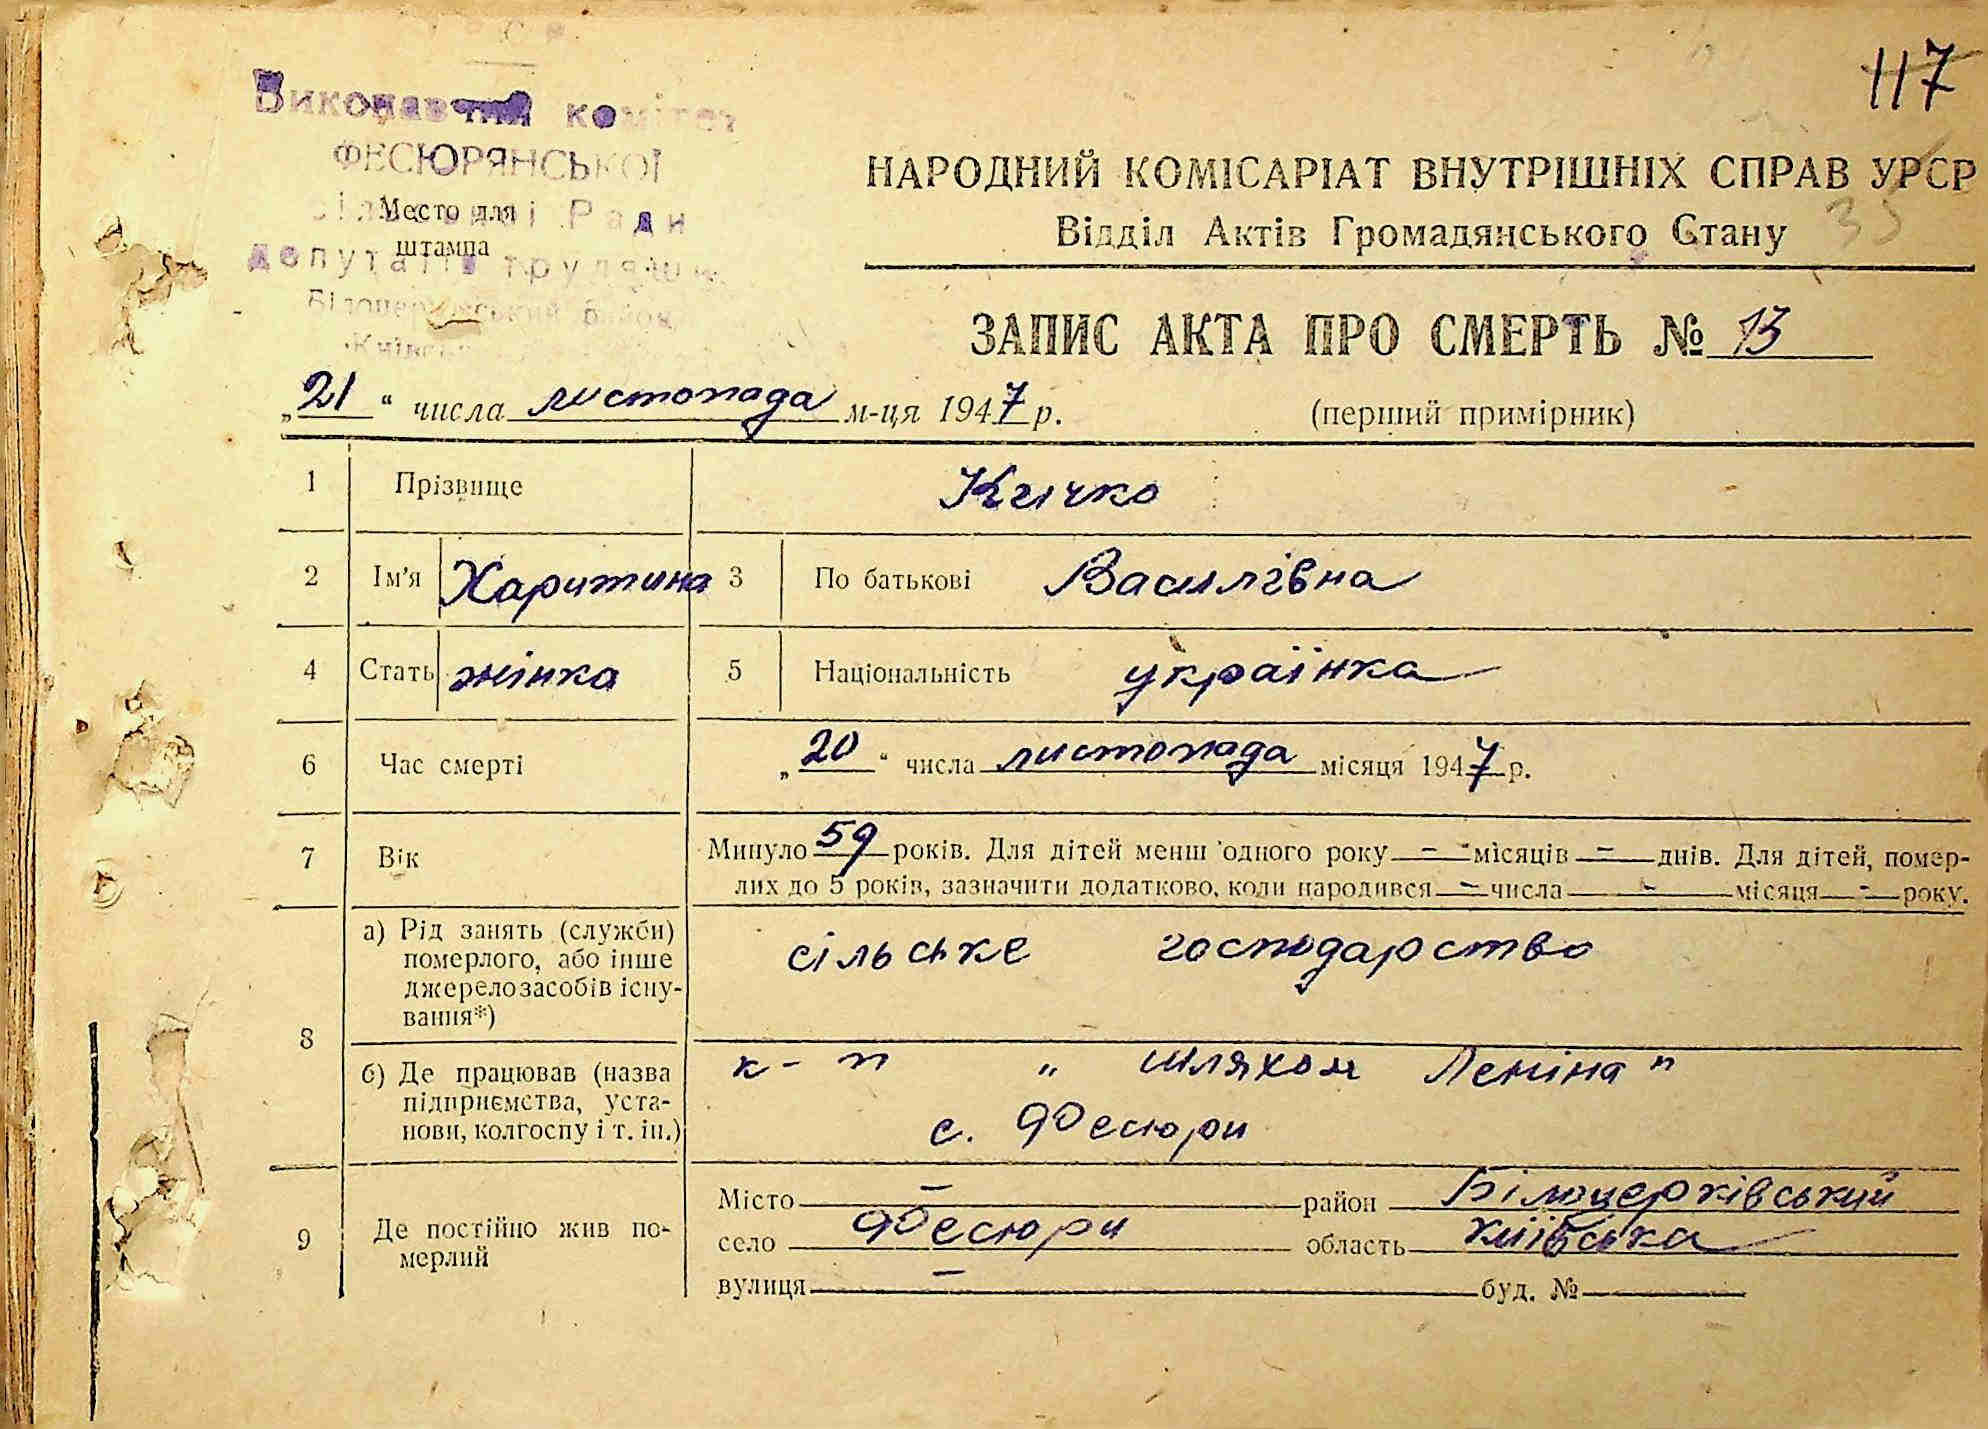 117
Виконавчий комітет
ФЕСЮРЯНСЬКОЇ
Ради
Место для
штампа
депутатів трудящих
Білоцерківський район
НАРОДНИЙ КОМІСАРІАТ ВНУТРІШНІХ СПРАВ УРСР
Відділ Актів Громадянського Стану
35
ЗАПИС АКТА ПРО СМЕРТЬ № 13
„21“ числа листопада м-ця 1947 р.
(перший примірник)
1 Прізвище Кличко
2 Ім'я Харитина 3 По батькові Василівна
4 Стать жінка 5 Національність українка
6 Час смерті „20“ числа листопада місяця 1947 р.
7 Вік Минуло 59 років. Для дітей менш одного року - місяців - днів. Для дітей, помер-
лих до 5 років, зазначити додатково, коли народився - числа - місяця - року.
8
а) Рід занять (служби)
померлого, або інше
джерело засобів існу-
вання*)
сільське господарство
б) Де працював (назва
підприємства, уста-
нови, колгоспу і т. ін.)
к-п „ шляхом Леніна"
с. Фесюри
9 Де постійно жив по-
мерлий
Місто - район Білоцерківський
село Фесюри область київська
вулиця - буд. №